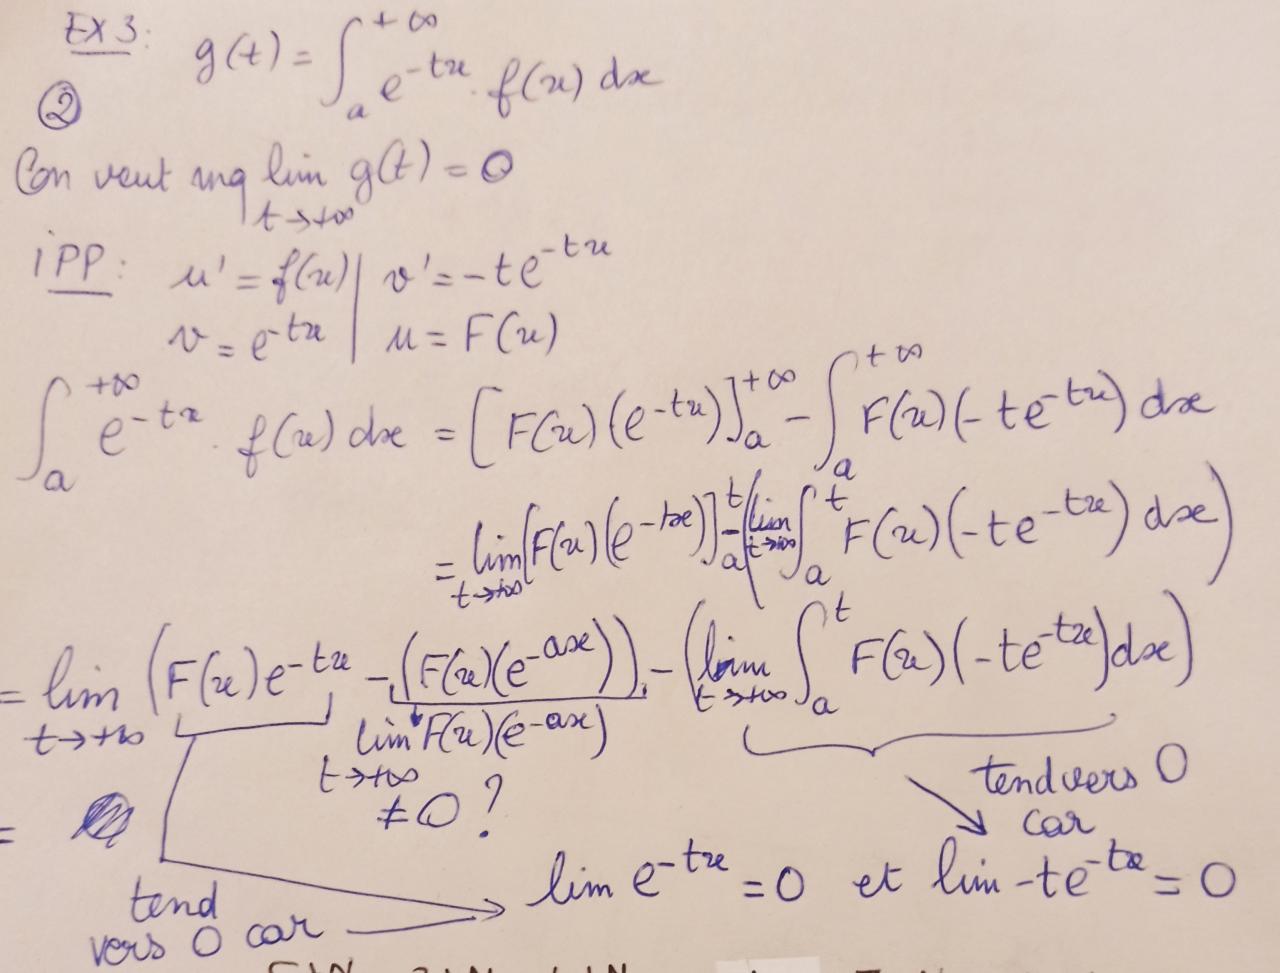 EX 3: g(t) = ∫_a^{+∞} e^{-tx} . f(x) dx
②
On veut mq lim_{t→+∞} g(t) = 0
iPP: u' = f(x) | v' = -te^{-tx}
v = e^{-tx} | u = F(x)
∫_a^{+∞} e^{-tx} . f(x) dx = [F(x)(e^{-tx})]_a^{+∞} - ∫_a^{+∞} F(x)(-te^{-tx}) dx
= lim_{t→+∞} [F(x)(e^{-tx})]_a^t - (lim_{t→+∞} ∫_a^t F(x)(-te^{-tx}) dx)
= lim_{t→+∞} (F(x)e^{-tx} - (F(x)(e^{-ax}))) - (lim_{t→+∞} ∫_a^t F(x)(-te^{-tx})dx)
lim_{t→+∞} F(x)(e^{-ax})
≠ 0 ?
tend vers 0
car
=
lim e^{-tx} = 0 et lim -te^{-tx} = 0
tend
vers 0 car